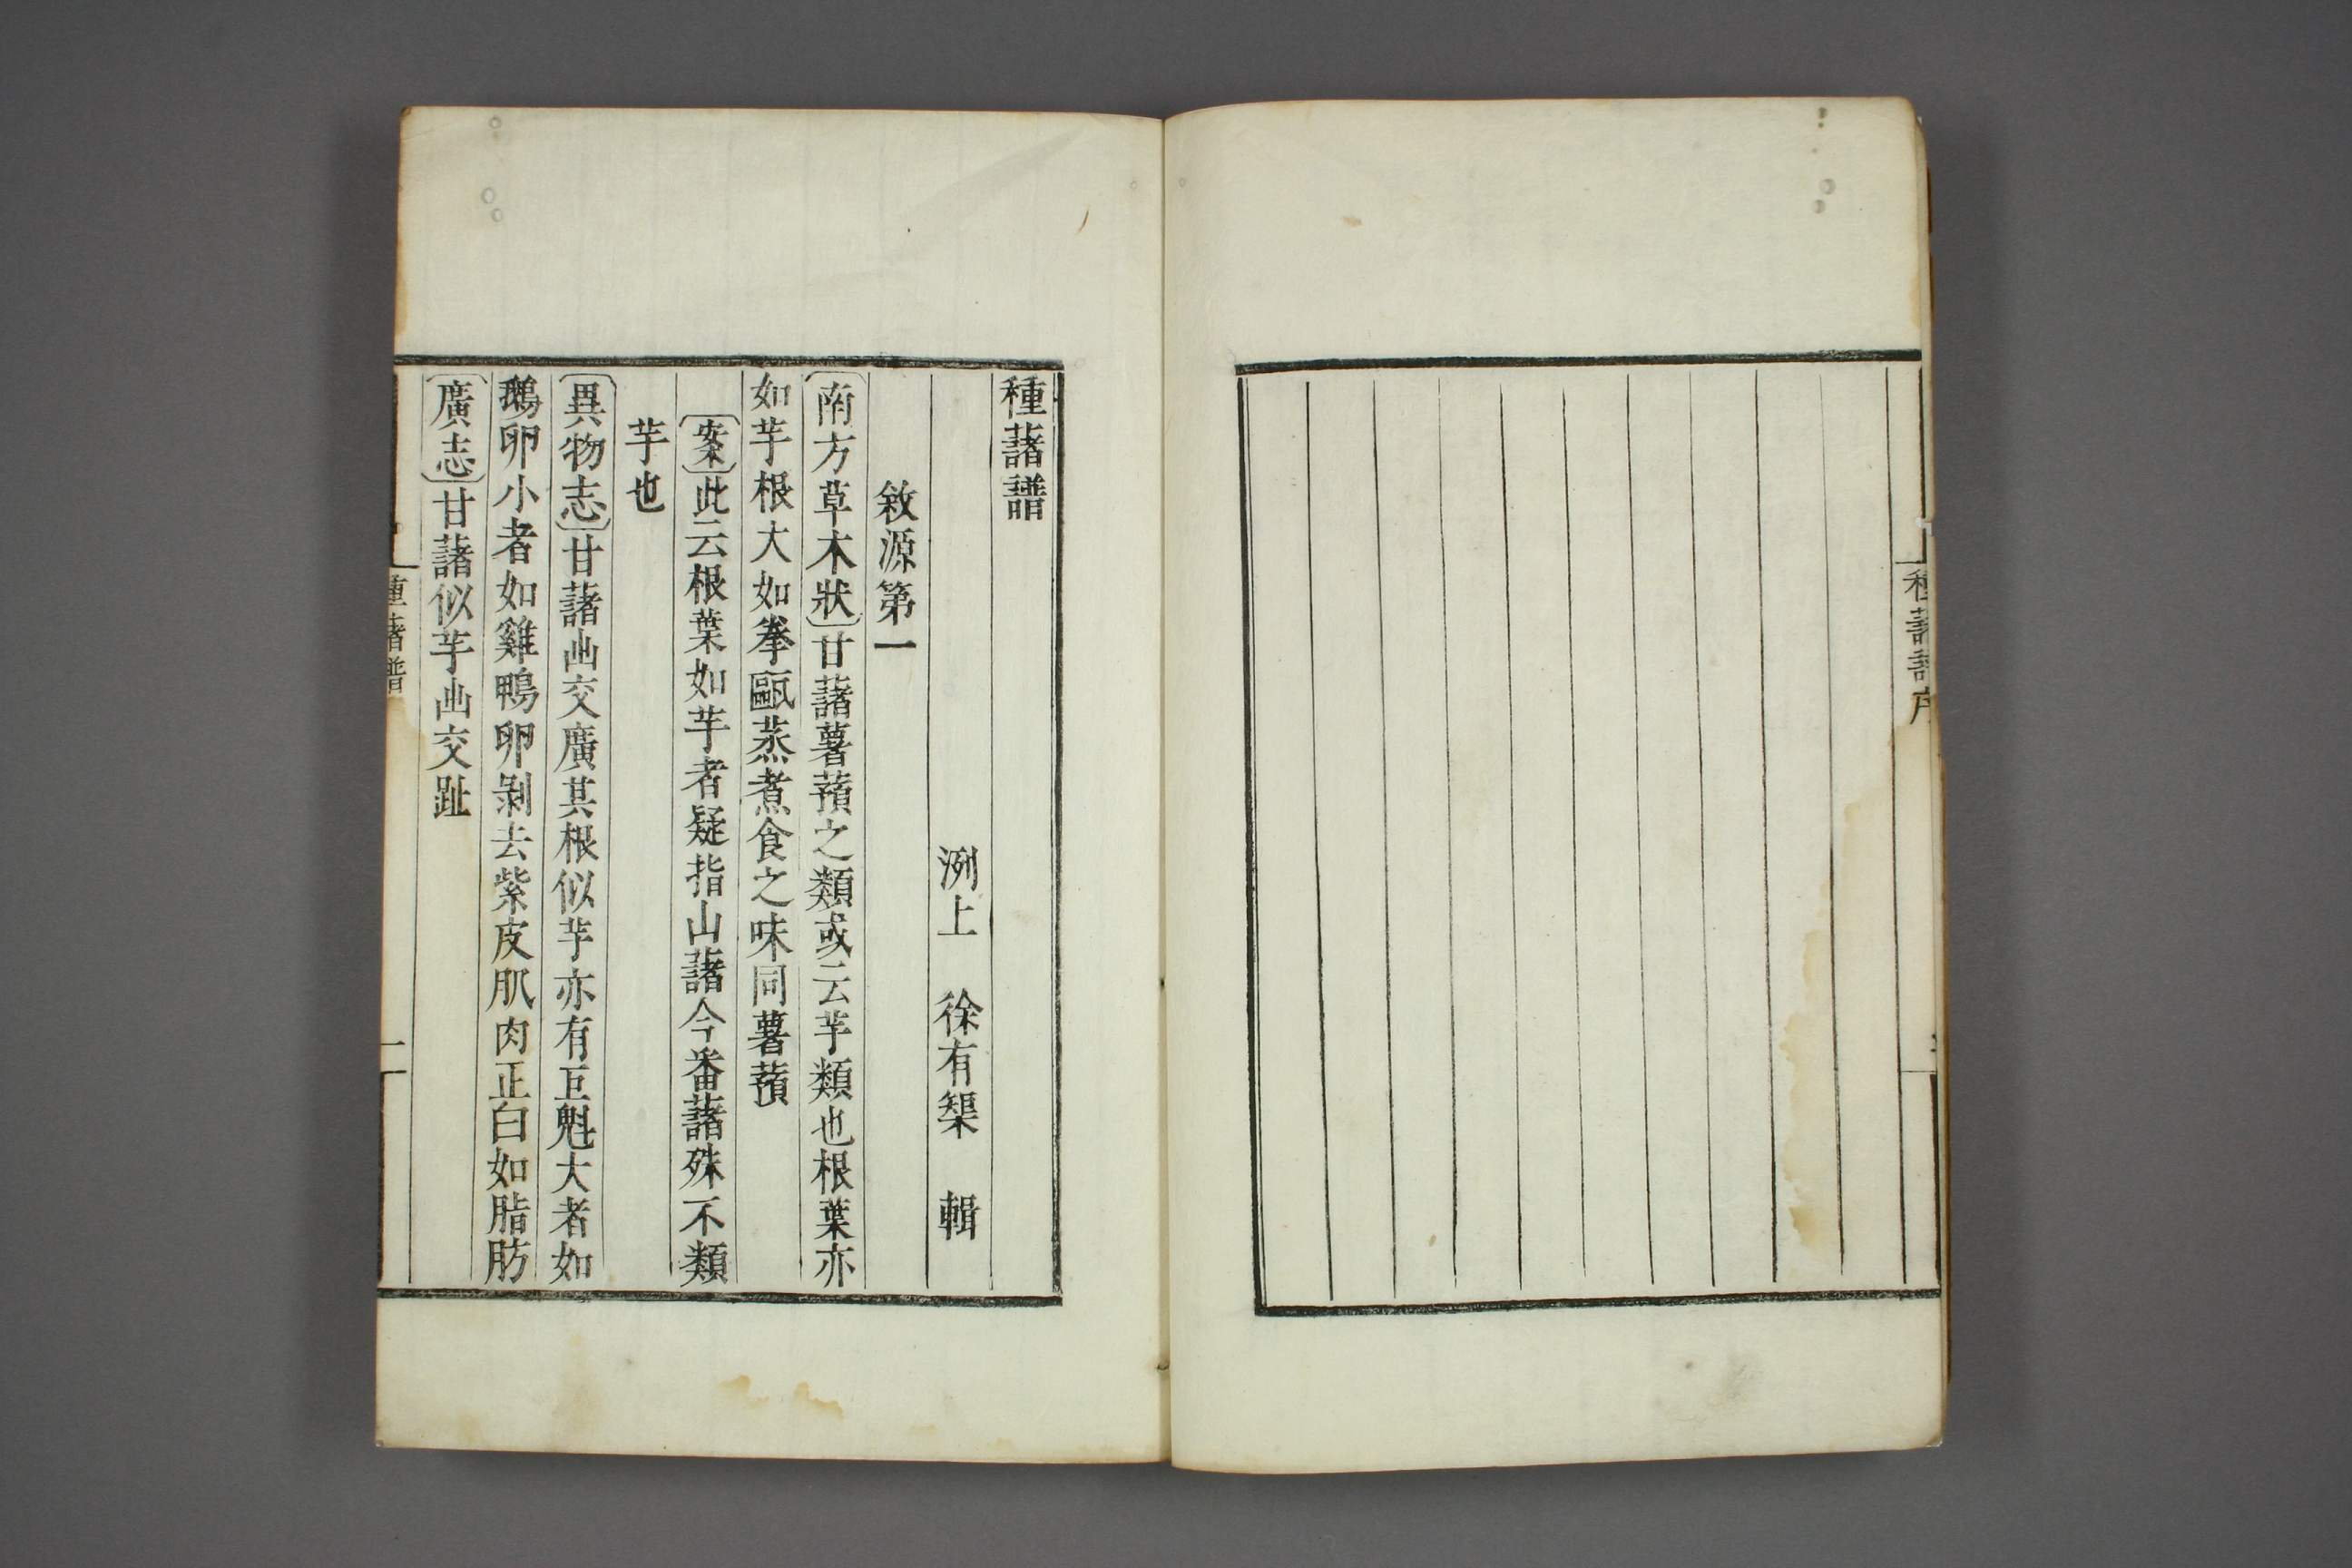 種藷譜序
種藷譜
洌上 徐有榘 輯
敘源第一
南方草木狀甘藷薯蕷之類或云芋類也根葉亦
如芋根大如拳甌蒸煮食之味同薯蕷
案此云根葉如芋者疑指山藷今番藷殊不類
芋也
異物志甘藷出交廣其根似芋亦有巨魁大者如
鵝卵小者如雞鴨卵剝去紫皮肌肉正白如脂肪
廣志甘藷似芋出交趾
種藷譜
一